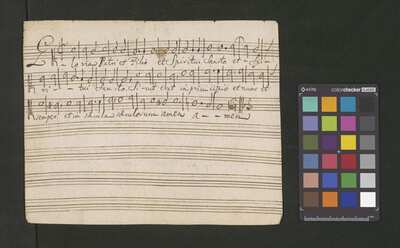 Gloria Patri et Filio et Spiritui Sancto et Spi-
ri- tui Sancto. Si-cut erat in principio et nunc et
semper et in saecula saeculorum amen a - men
colorchecker CLASSIC
x-rite